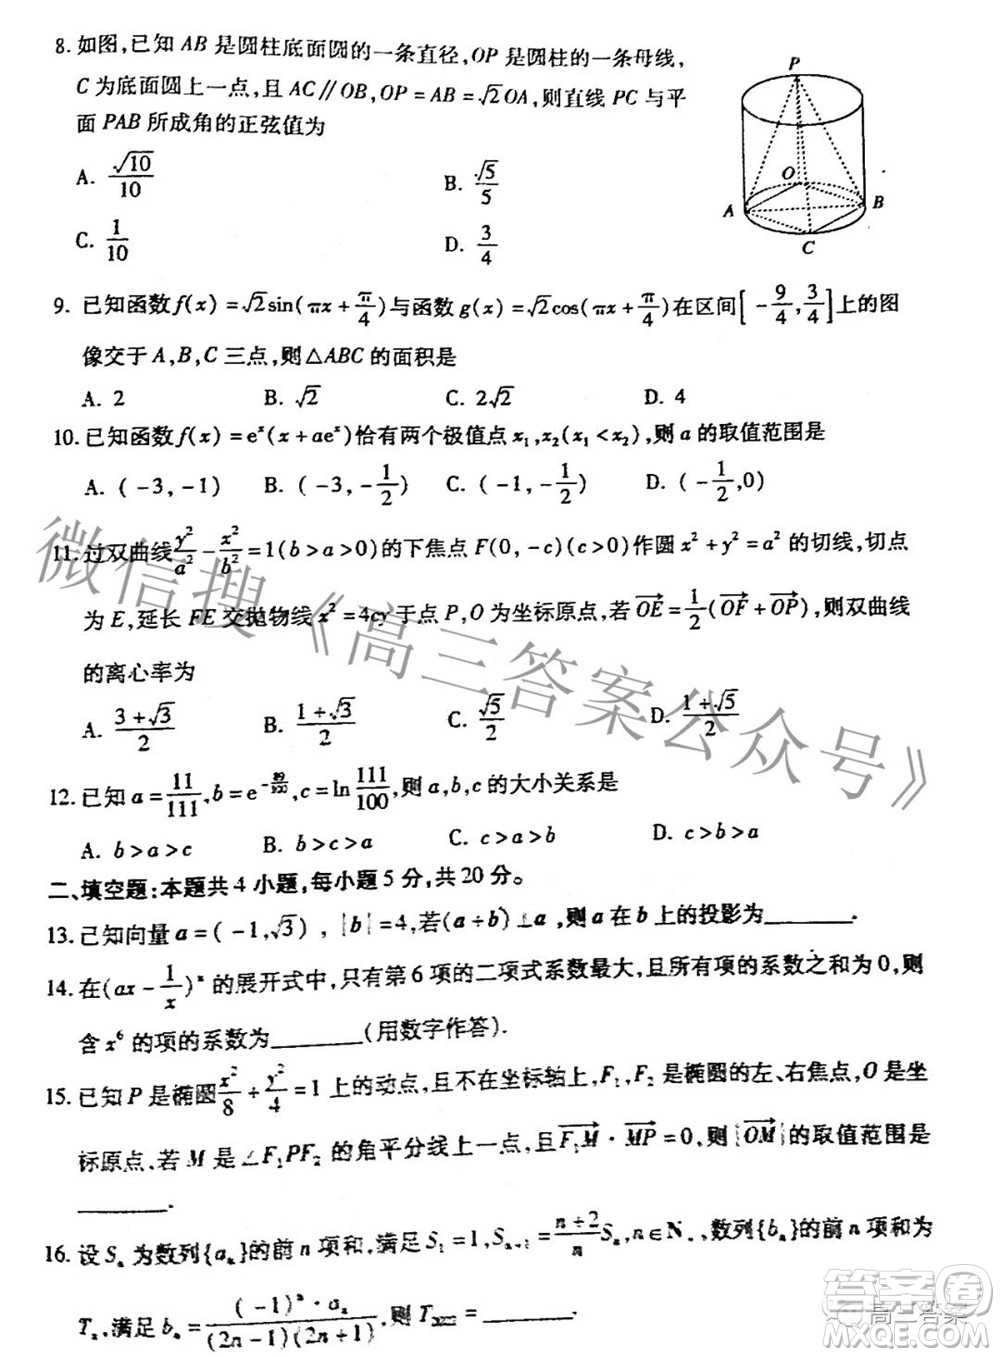 8. 如图,已知 AB 是圆柱底面圆的一条直径,OP 是圆柱的一条母线,
C 为底面圆上一点,且 AC∥OB,OP=AB=√2OA,则直线 PC 与平
面 PAB 所成角的正弦值为
A. √10/10 B. √5/5
C. 1/10 D. 3/4
P
O
A
B
C
9. 已知函数 f(x)=√2sin(πx+π/4)与函数 g(x)=√2cos(πx+π/4)在区间[-9/4,3/4]上的图
像交于 A,B,C 三点,则△ABC 的面积是
A. 2 B. √2 C. 2√2 D. 4
10. 已知函数 f(x)=eˣ(x+aeˣ)恰有两个极值点 x₁,x₂(x₁<x₂),则 a 的取值范围是
A. (-3,-1) B. (-3,-1/2) C. (-1,-1/2) D. (-1/2,0)
11. 过双曲线y²/a²-x²/b²=1(b>a>0)的下焦点 F(0,-c)(c>0)作圆 x²+y²=a² 的切线,切点
为 E,延长 FE 交抛物线 x²=4cy 于点 P,O 为坐标原点,若OE=1/2(OF+OP),则双曲线
的离心率为
A. (3+√3)/2 B. (1+√3)/2 C. √5/2 D. (1+√5)/2
12. 已知 a=11/111,b=e^-,c=ln111/100,则 a,b,c 的大小关系是
A. b>a>c B. b>c>a C. c>a>b D. c>b>a
二、填空题:本题共 4 小题,每小题 5 分,共 20 分。
13. 已知向量 a=(-1,√3),|b|=4,若(a+b)⊥a,则 a 在 b 上的投影为______.
14. 在(ax-1/x)ⁿ的展开式中,只有第 6 项的二项式系数最大,且所有项的系数之和为 0,则
含 x⁶ 的项的系数为______(用数字作答).
15. 已知 P 是椭圆x²/8+y²/4=1 上的动点,且不在坐标轴上,F₁,F₂ 是椭圆的左、右焦点,O 是坐
标原点、若 M 是∠F₁PF₂ 的角平分线上一点,且F₁M·MP=0,则|OM|的取值范围是
______.
16. 设 Sₙ 为数列{aₙ}的前 n 项和,满足 S₁=1,Sₙ₊₁=(n+2)/n Sₙ,n∈N₊,数列{bₙ}的前 n 项和为
Tₙ,满足 bₙ=((-1)ⁿ·aₙ)/((2n-1)(2n+1)),则 T =______.
微信搜《高三答案公众号》
答案卷
高三答案
MXQE.COM